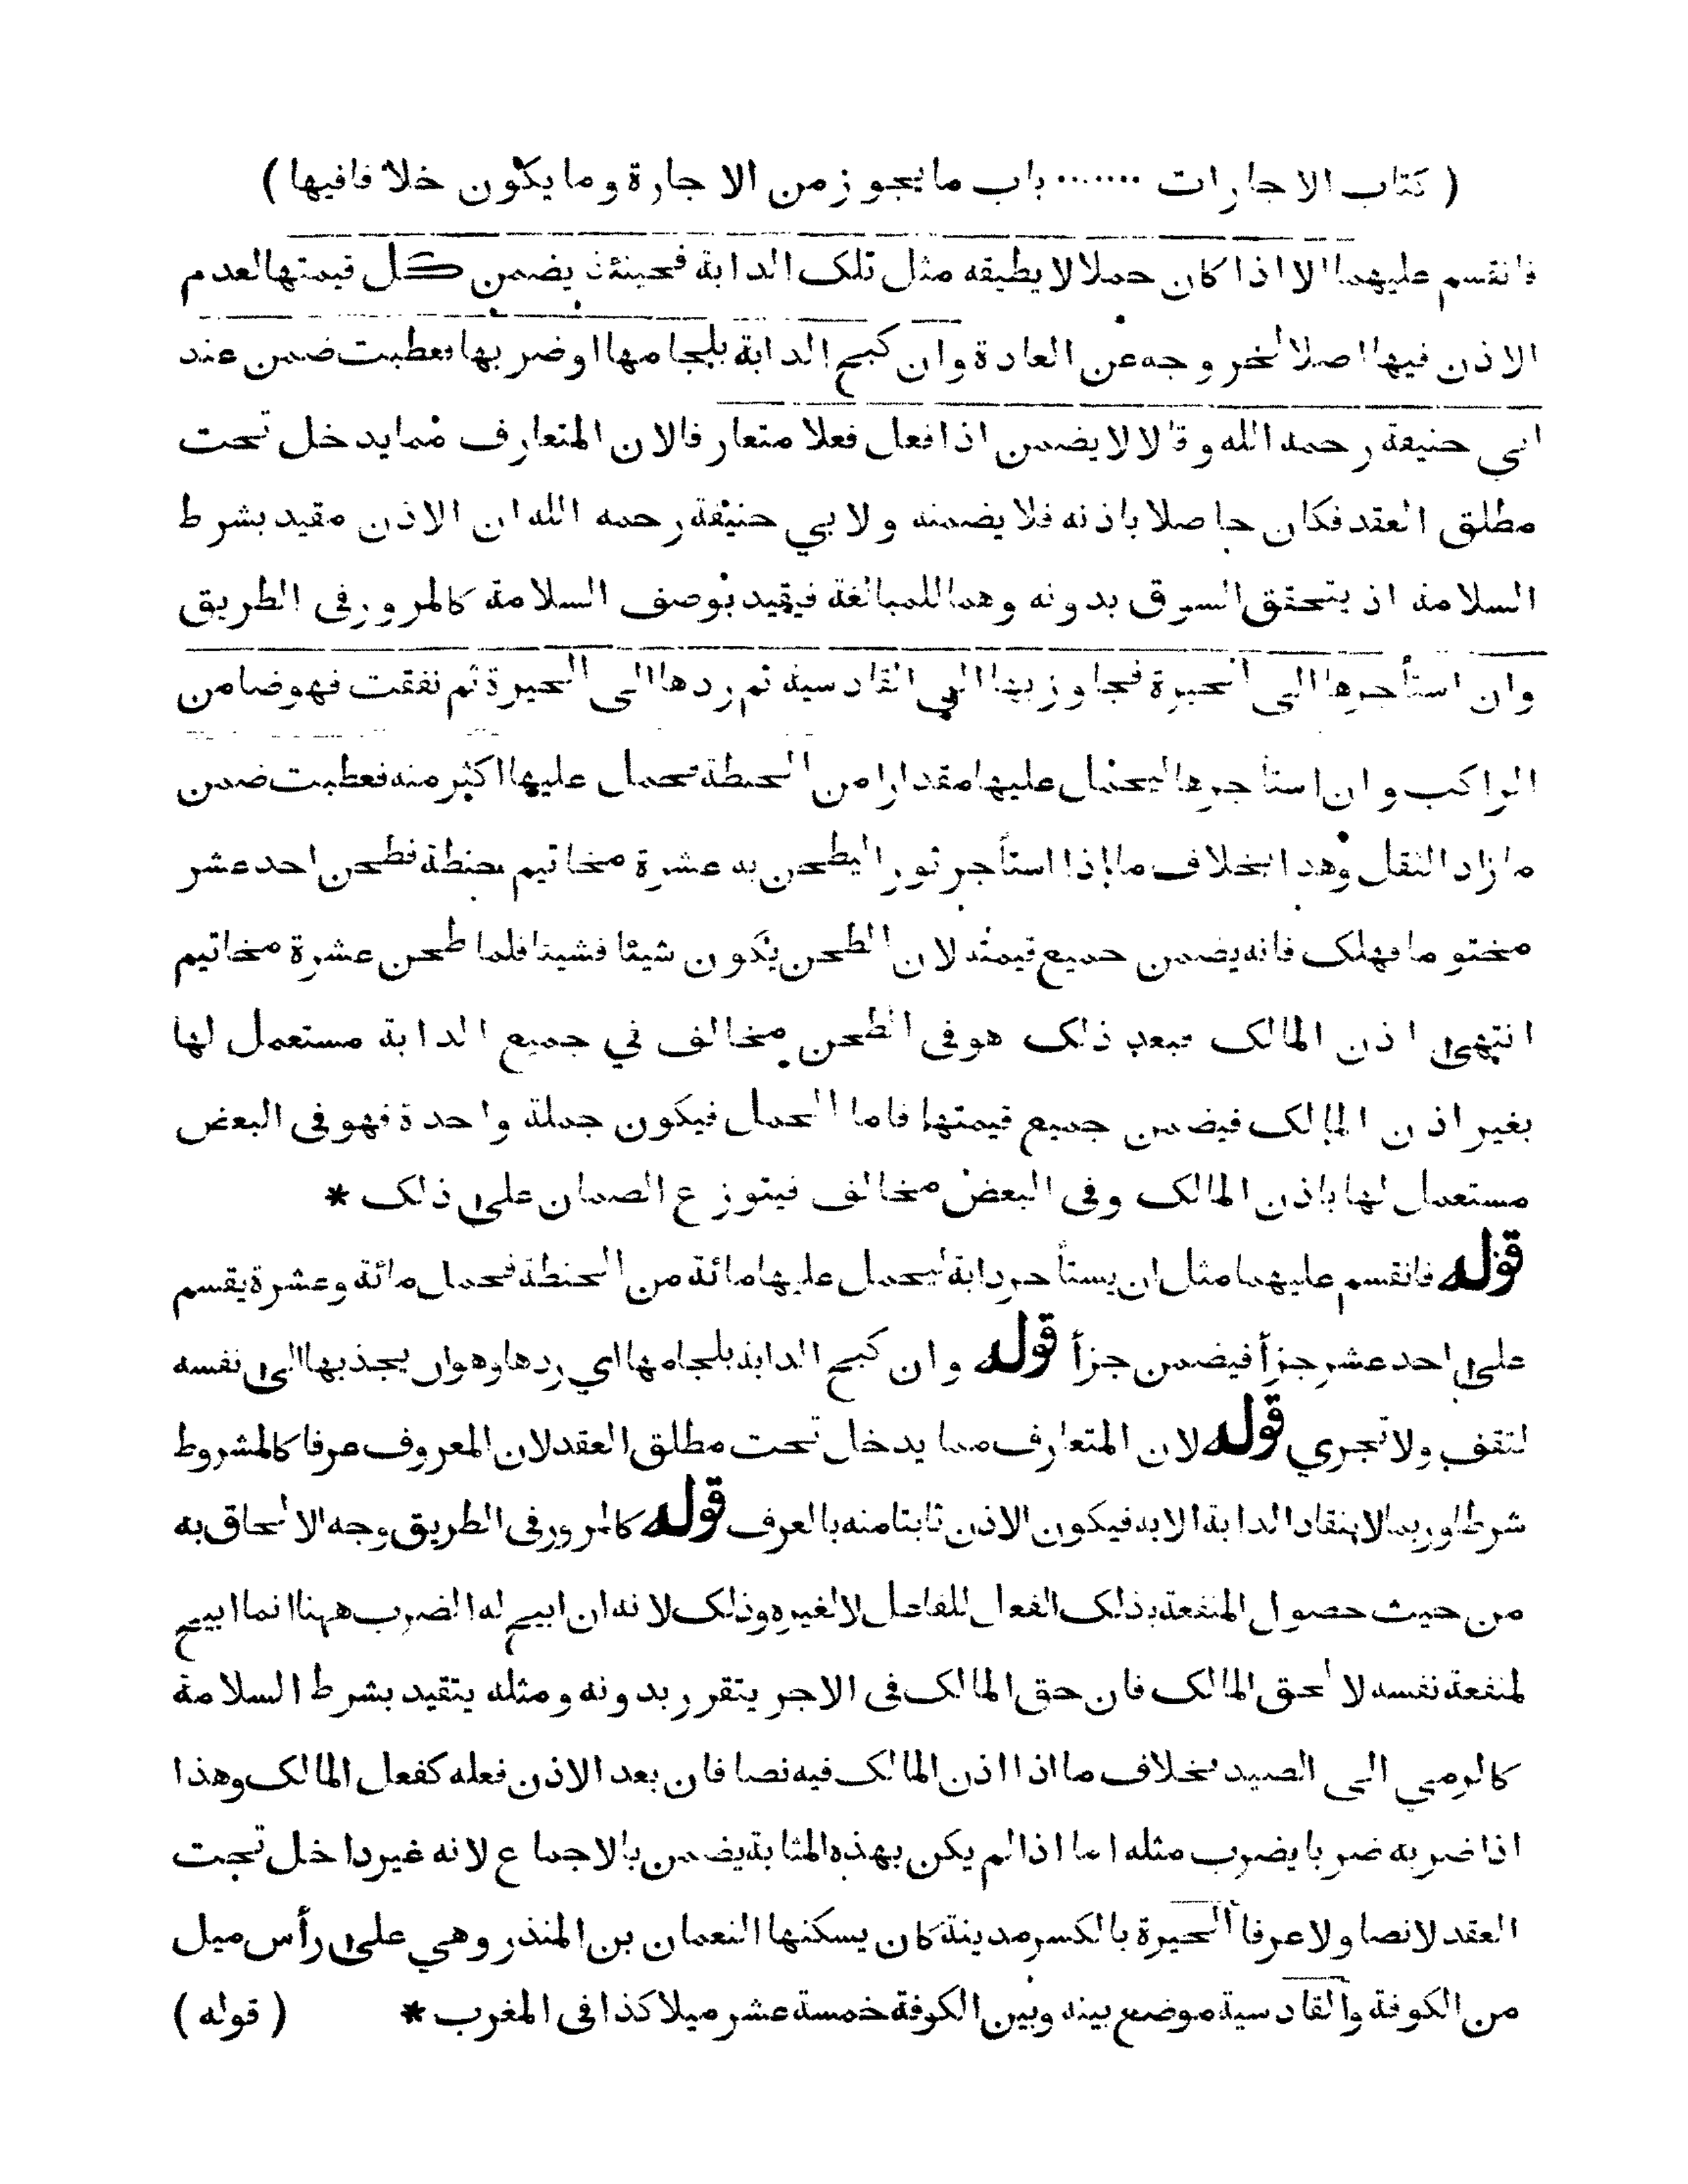 ( كتاب الاجارات ....... باب ما يجوز من الاجارة وما يكون خلافا فيها )
فانقسم عليهما الا اذا كان حملا لا يطيقه مثل تلك الدابة فحينئذ يضمن كل قيمتها لعدم
الاذن فيها اصلا لخروجه عن العادة وان كبح الدابة بلجامها او ضربها فعطبت ضمن عند
ابي حنيفة رحمه الله وقالا لا يضمن اذا فعل فعلا متعارفا لان المتعارف مما يدخل تحت
مطلق العقد فكان حاصلا باذنه فلا يضمنه ولابي حنيفة رحمه الله ان الاذن مقيد بشرط
السلامة اذ يتحقق السوق بدونه وهما للمبالغة فيقيد بوصف السلامة كالمرور فى الطريق
وان استأجرها الى الحيرة فجاوز بها الى القادسية ثم ردها الى الحيرة ثم نفقت فهو ضامن
الراكب وان استأجرها ليحمل عليها مقدارا من الحنطة فحمل عليها اكثر منه فعطبت ضمن
ما زاد الثقل وهذا بخلاف ما اذا استأجر ثورا ليطحن به عشرة مخاتيم حنطة فطحن احد عشر
مختوما فهلك فانه يضمن جميع قيمته لان الطحن يكون شيئا فشيئا فلما طحن عشرة مخاتيم
انتهى اذن المالك فبعد ذلك هو فى الطحن مخالف في جميع الدابة مستعمل لها
بغير اذن المالك فيضمن جميع قيمتها فاما الحمل فيكون جملة واحدة فهو فى البعض
مستعمل لها باذن المالك وفى البعض مخالف فيتوزع الضمان على ذلك *
قوله فانقسم عليهما مثل ان يستأجر دابة ليحمل عليها مائة من الحنطة فحمل مائة وعشرة يقسم
على احد عشر جزأ فيضمن جزأ قوله وان كبح الدابة بلجامها اي ردها وهو ان يجذبها الى نفسه
لتقف ولا تجري قوله لان المتعارف مما يدخل تحت مطلق العقد لان المعروف عرفا كالمشروط
شرطا وربما لا ينقاد الدابة الا به فيكون الاذن ثابتا منه بالعرف قوله كالمرور فى الطريق وجه الالحاق به
من حيث حصول المنفعة بذلك الفعل للفاعل لا لغيره وذلك لانه ان ابيح له الضرب ههنا انما ابيح
لمنفعة نفسه لا لحق المالك فان حق المالك فى الاجر يتقرر بدونه ومثله يتقيد بشرط السلامة
كالرمي الى الصيد بخلاف ما اذا اذن المالك فيه نصا فان بعد الاذن فعله كفعل المالك وهذا
اذا ضربه ضربا يضرب مثله اما اذا لم يكن بهذه المثابة يضمن بالاجماع لانه غير داخل تحت
العقد لا نصا ولا عرفا الحيرة بالكسر مدينة كان يسكنها النعمان بن المنذر وهي على رأس ميل
من الكوفة والقادسية موضع بينه وبين الكوفة خمسة عشر ميلا كذا فى المغرب * ( قوله )